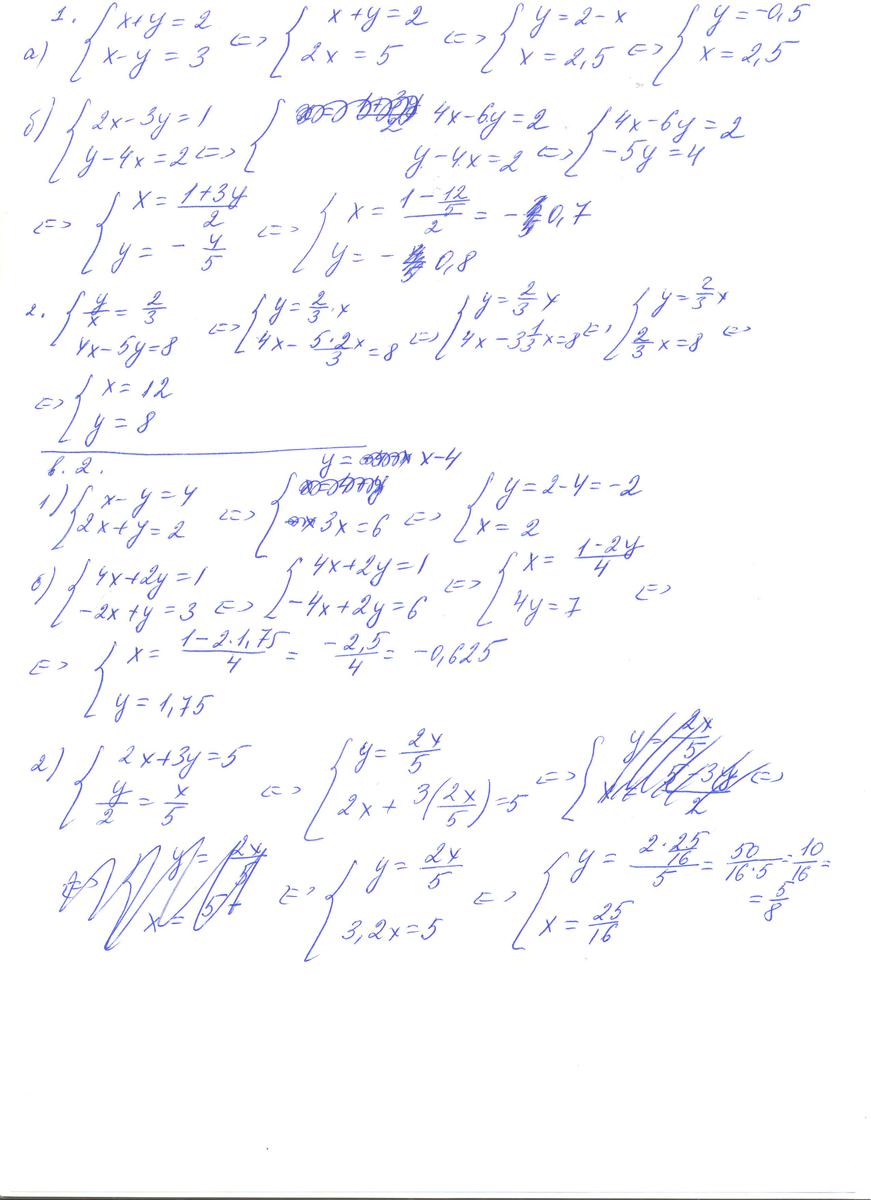 1.
а) { x+y=2 ; x-y=3 <=> { x+y=2 ; 2x=5 <=> { y=2-x ; x=2,5 <=> { y=-0,5 ; x=2,5
б) { 2x-3y=1 ; y-4x=2 <=> { 4x-6y=2 ; y-4x=2 <=> { 4x-6y=2 ; -5y=4
<=> { x=(1+3y)/2 ; y=-4/5 <=> { x=(1-12/5)/2=-0,7 ; y=-0,8
2. { y/x=2/3 ; 4x-5y=8 <=> { y=2/3·x ; 4x-(5·2x)/3=8 <=> { y=2/3 x ; 4x-3 1/3 x=8 <=> { y=2/3 x ; 2/3 x=8 <=>
<=> { x=12 ; y=8
в.2.
1) { x-y=4 ; 2x+y=2 <=> { y=x-4 ; 3x=6 <=> { y=2-4=-2 ; x=2
б) { 4x+2y=1 ; -2x+y=3 <=> { 4x+2y=1 ; -4x+2y=6 <=> { x=(1-2y)/4 ; 4y=7 <=>
<=> { x=(1-2·1,75)/4=-2,5/4=-0,625 ; y=1,75
2) { 2x+3y=5 ; y/2=x/5 <=> { y=2x/5 ; 2x+3(2x/5)=5 <=>
<=> { y=2x/5 ; 3,2x=5 <=> { y=(2·25/16)/5=50/(16·5)=10/16==5/8 ; x=25/16